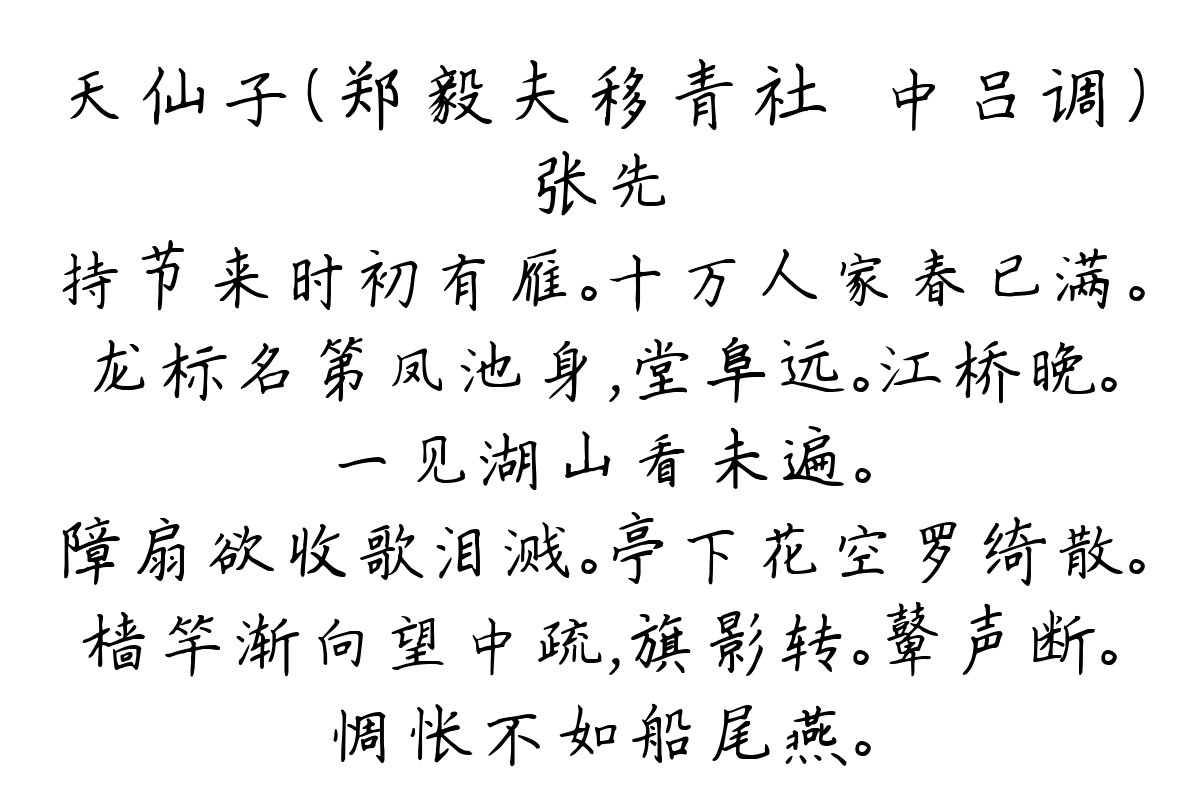 天仙子(郑毅夫移青社 中吕调)
张先
持节来时初有雁。十万人家春已满。
龙标名第凤池身,堂阜远。江桥晚。
一见湖山看未遍。
障扇欲收歌泪溅。亭下花空罗绮散。
樯竿渐向望中疏,旗影转。鼙声断。
惆怅不如船尾燕。